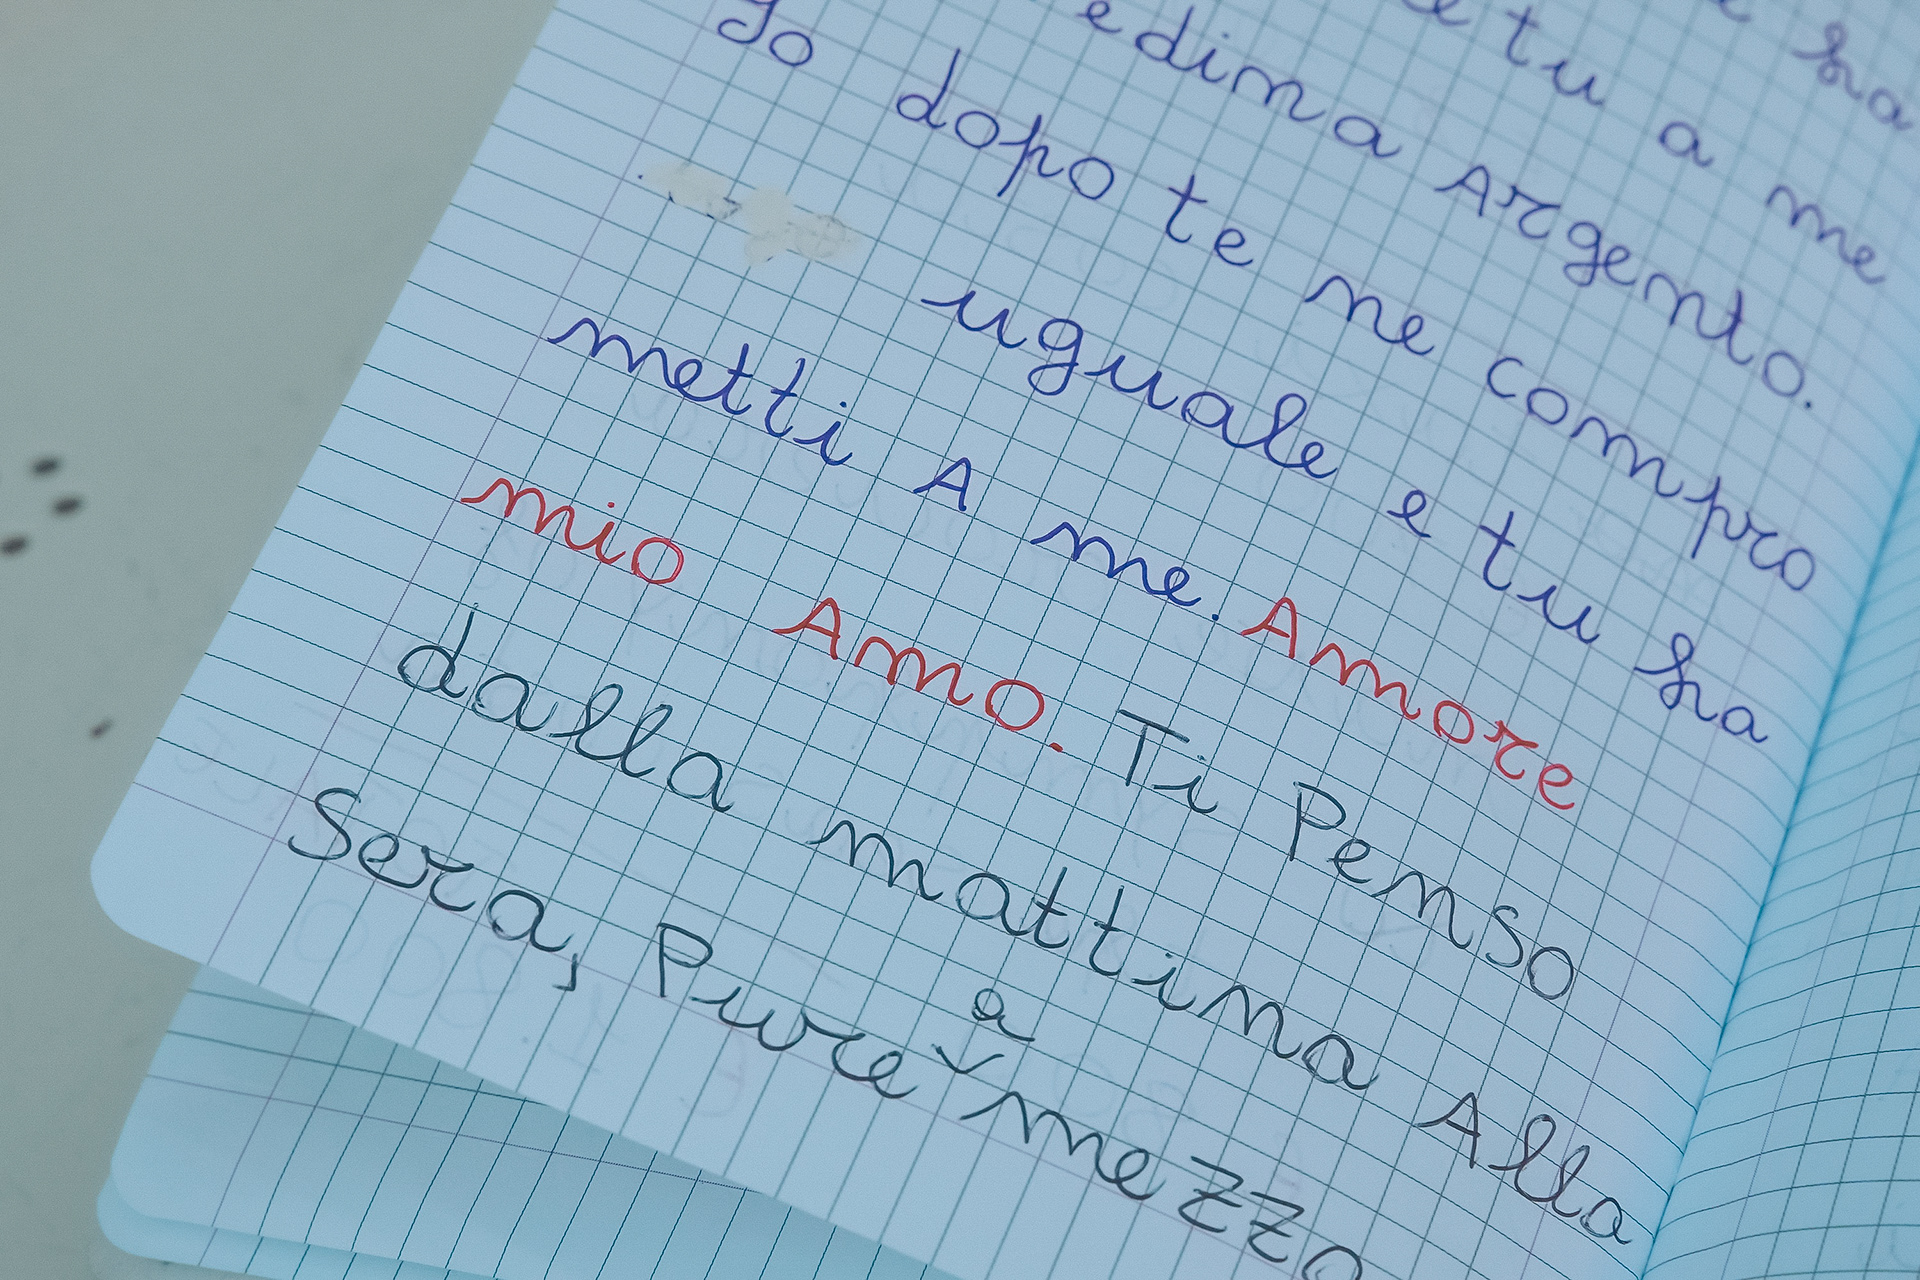 ha
e tu a me
edina Argento.
dopo te ne compro
uguale e tu ha
metti A me. Amore
mio Amo. Ti Penso
dalla mattina Alla
Sera, Pure a mezzo